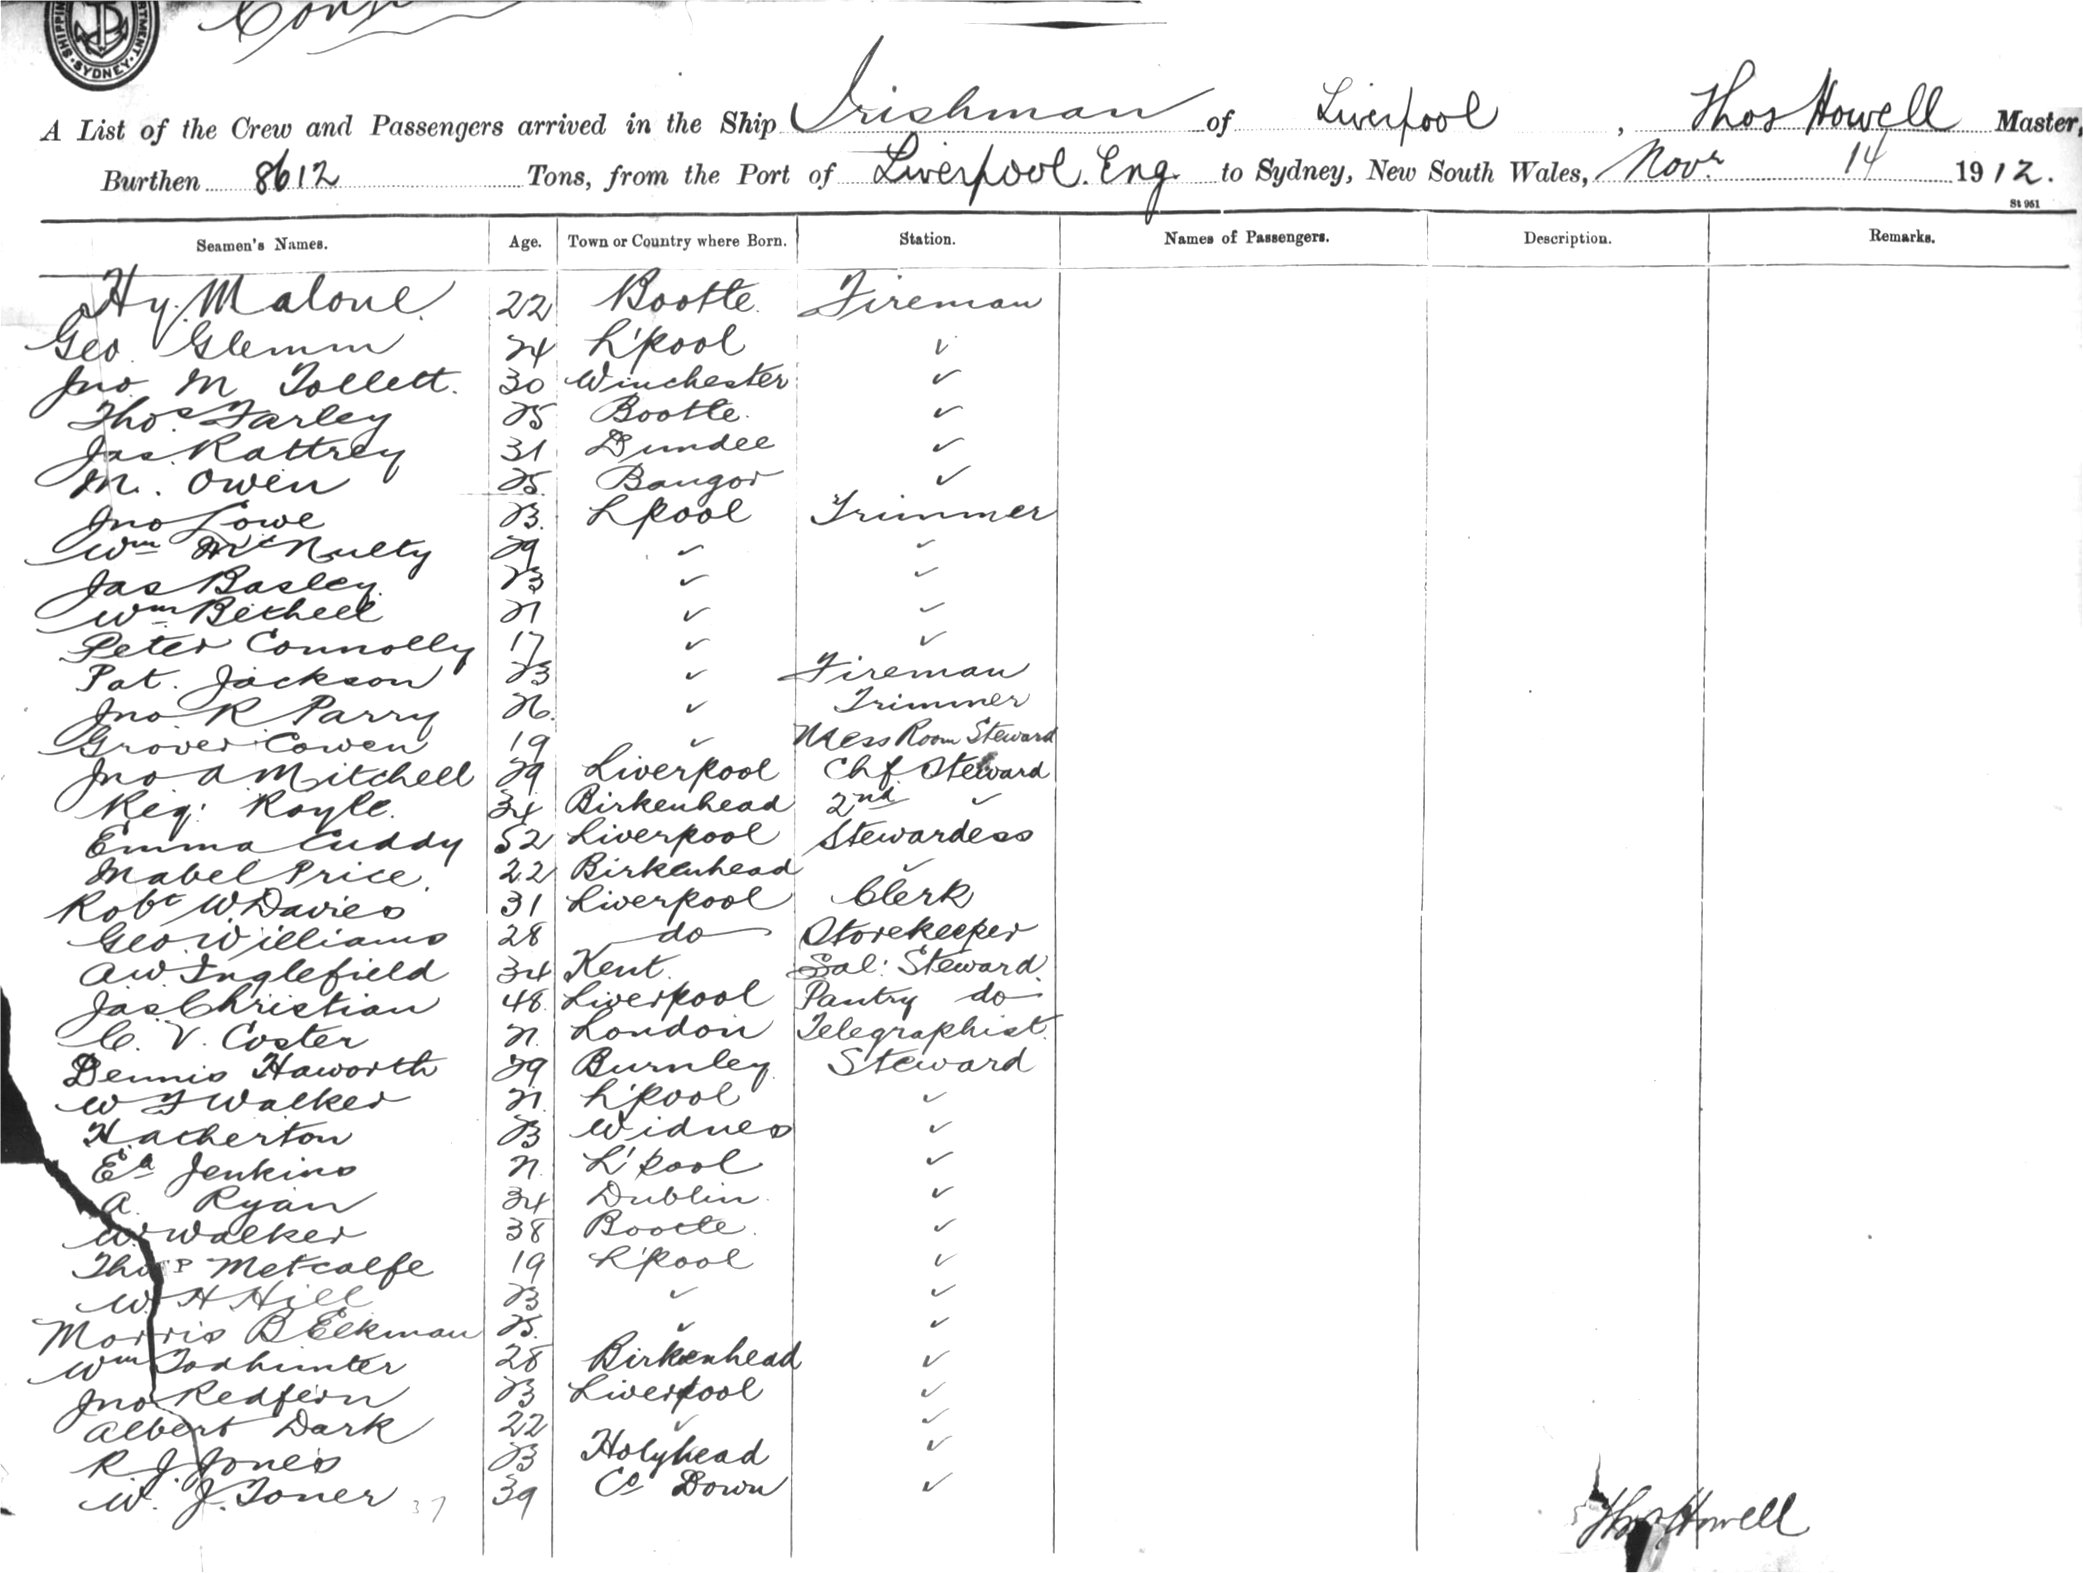 SHIPPING DEPARTMENT. SYDNEY.
A List of the Crew and Passengers arrived in the Ship Irishman of Liverpool, Thos Howell Master,
Burthen 8612 Tons, from the Port of Liverpool. Eng. to Sydney, New South Wales, Novr 14 1912.
St 961
Seamen's Names. Age. Town or Country where Born. Station. Names of Passengers. Description. Remarks.
Hy. Malone. 22 Bootle. Fireman
Geo Glemm 24 L'pool ✓
Jno M Tollett. 30 Winchester ✓
Thos Farley 25 Bootle. ✓
Jas. Rattrey 31 Dundee ✓
M. Owen 25 Bangor ✓
Jno Lowe 23. Lpool Trimmer
Wm McNulty 29 ✓ ✓
Jas Basley 23 ✓ ✓
Wm Bethell 21 ✓ ✓
Peter Connolly 17 ✓ ✓
Pat. Jackson 23 ✓ Fireman
Jno R Parry 26. ✓ Trimmer
Grover Cowen 19 ✓ Mess Room Steward
Jno A Mitchell 29 Liverpool Chf. Steward
Reg: Royle. 34 Birkenhead 2nd ✓
Emma Cuddy 52 Liverpool Stewardess
Mabel Price. 22 Birkenhead ✓
Robt W. Davies 31 Liverpool Clerk
Geo. Williams 28 do Storekeeper
A.W. Inglefield 34 Kent. Sal: Steward.
Jas. Christian 48 Liverpool Pantry do
C. V. Coster 21. London Telegraphist.
Dennis Haworth 29 Burnley Steward
W F Walker 21. L'pool ✓
H. Atherton 23 Widnes ✓
Ed Jenkins 21. L'pool ✓
A. Ryan 34 Dublin. ✓
W. Walker 38 Bootle. ✓
Thos P Metcalfe 19 L'pool ✓
W. H Hill 23 ✓ ✓
Morris B Elkman 25. ✓ ✓
Wm Todhunter 28 Birkenhead ✓
Jno Redfern 23 Liverpool ✓
Albert Dark 22 ✓ ✓
R. J. Jones 23 Holyhead ✓
W. J. Toner 37 39 Co Down ✓
Thos Howell